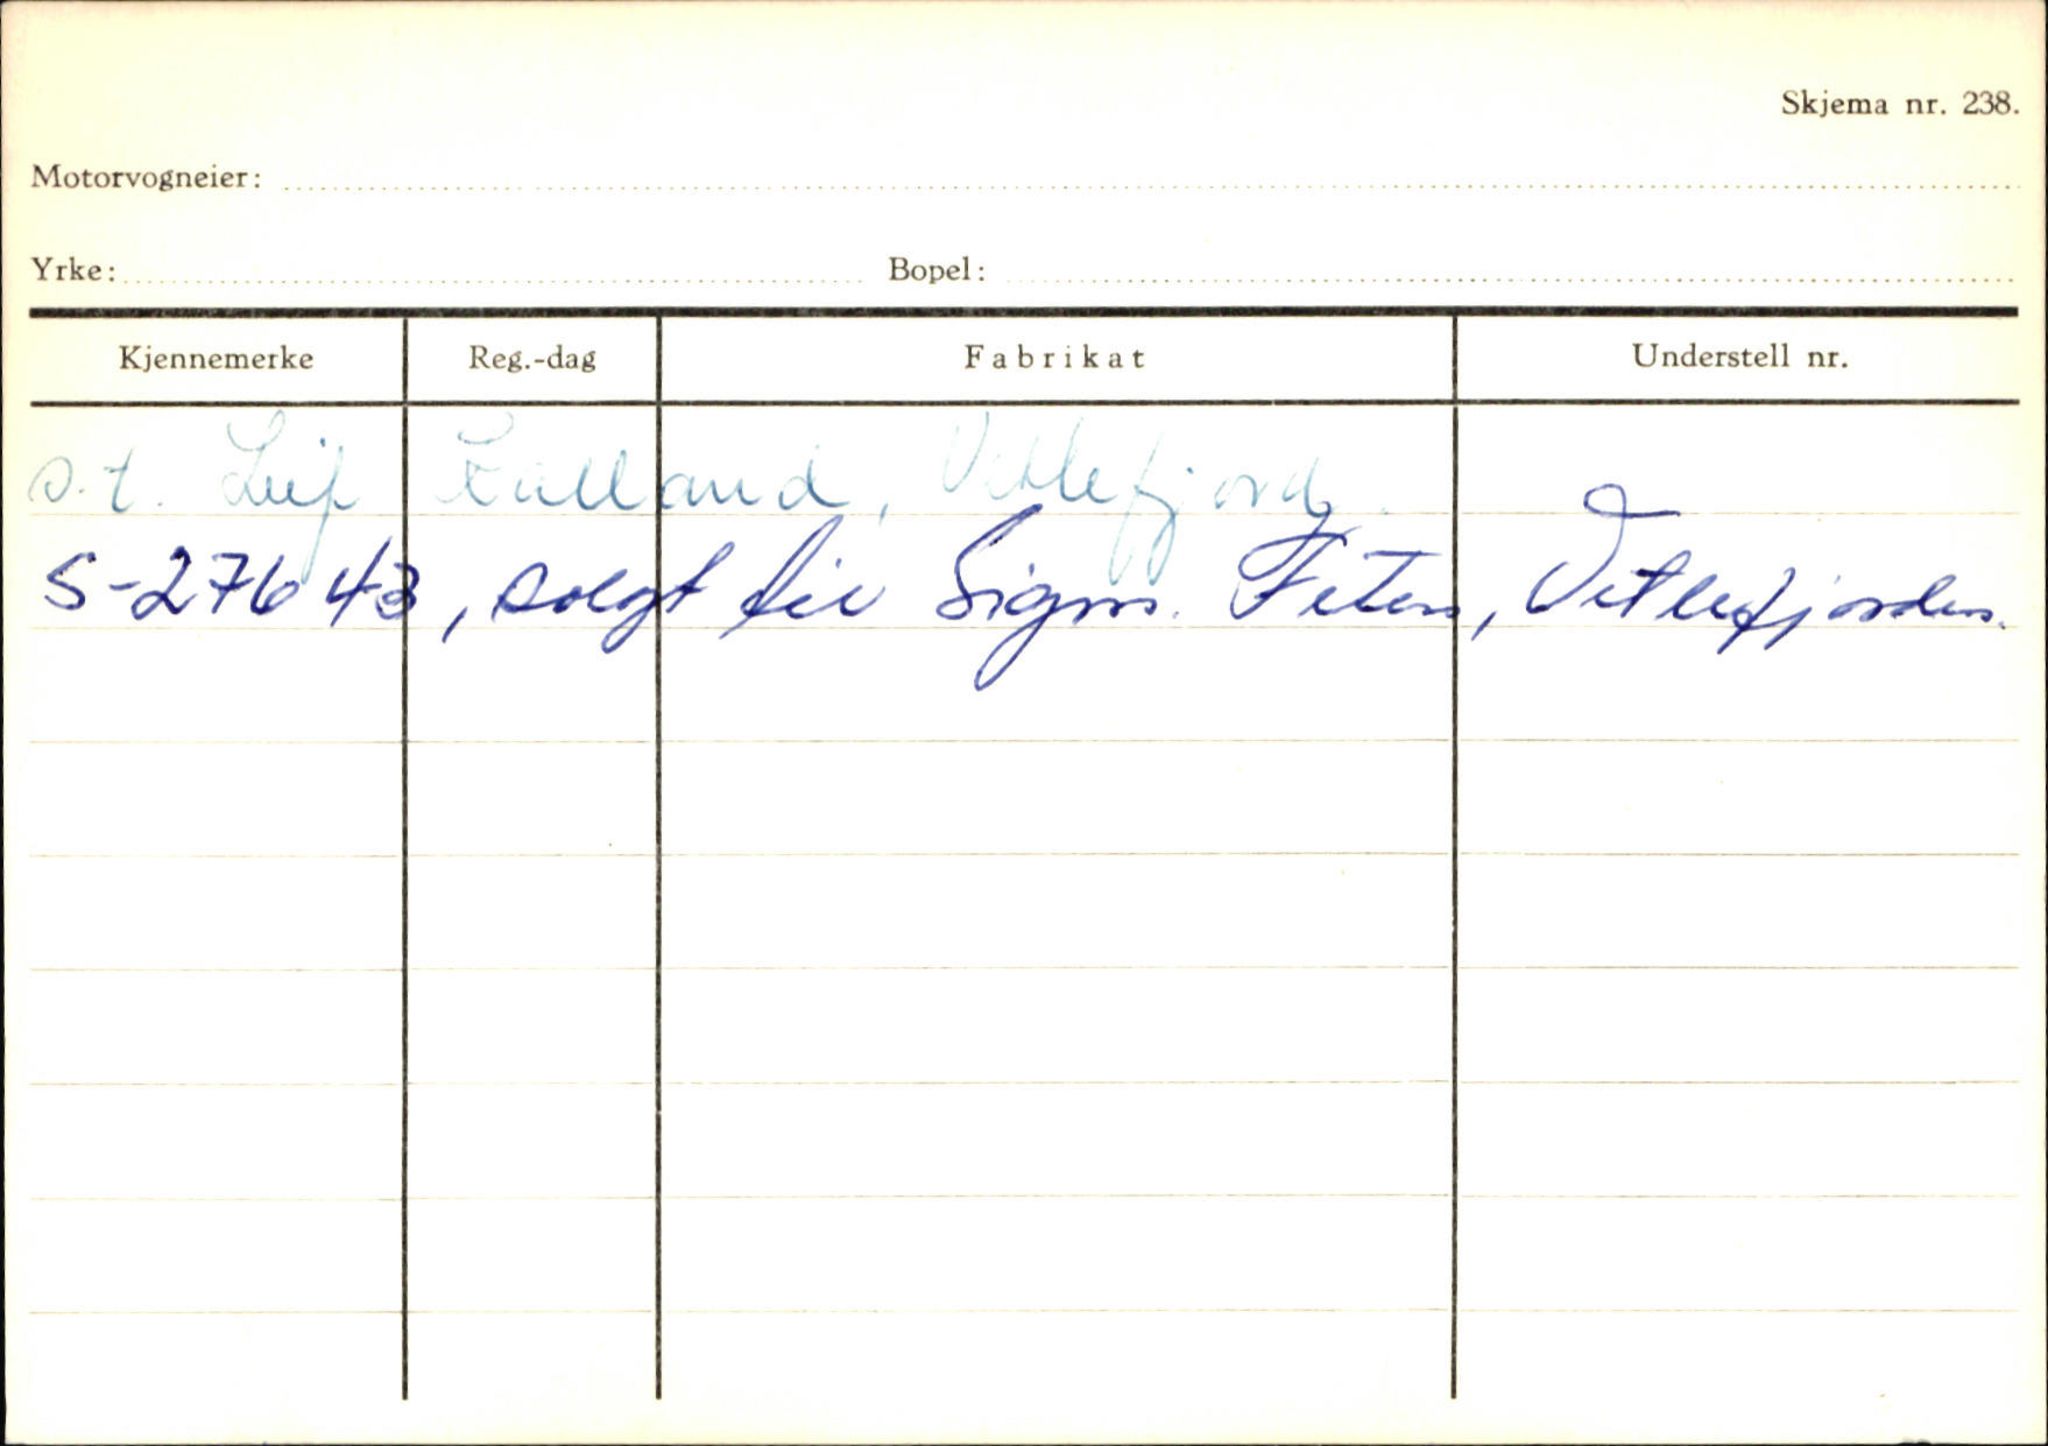 Skjema nr. 238.
Motorvogneier:
Yrke: Bopel:
Kjennemerke Reg.-dag Fabrikat Understell nr.
s.t. Leif Kalland, Vetlefjord.
S-27643, solgt til Sigm. Feten, Vetlefjorden.